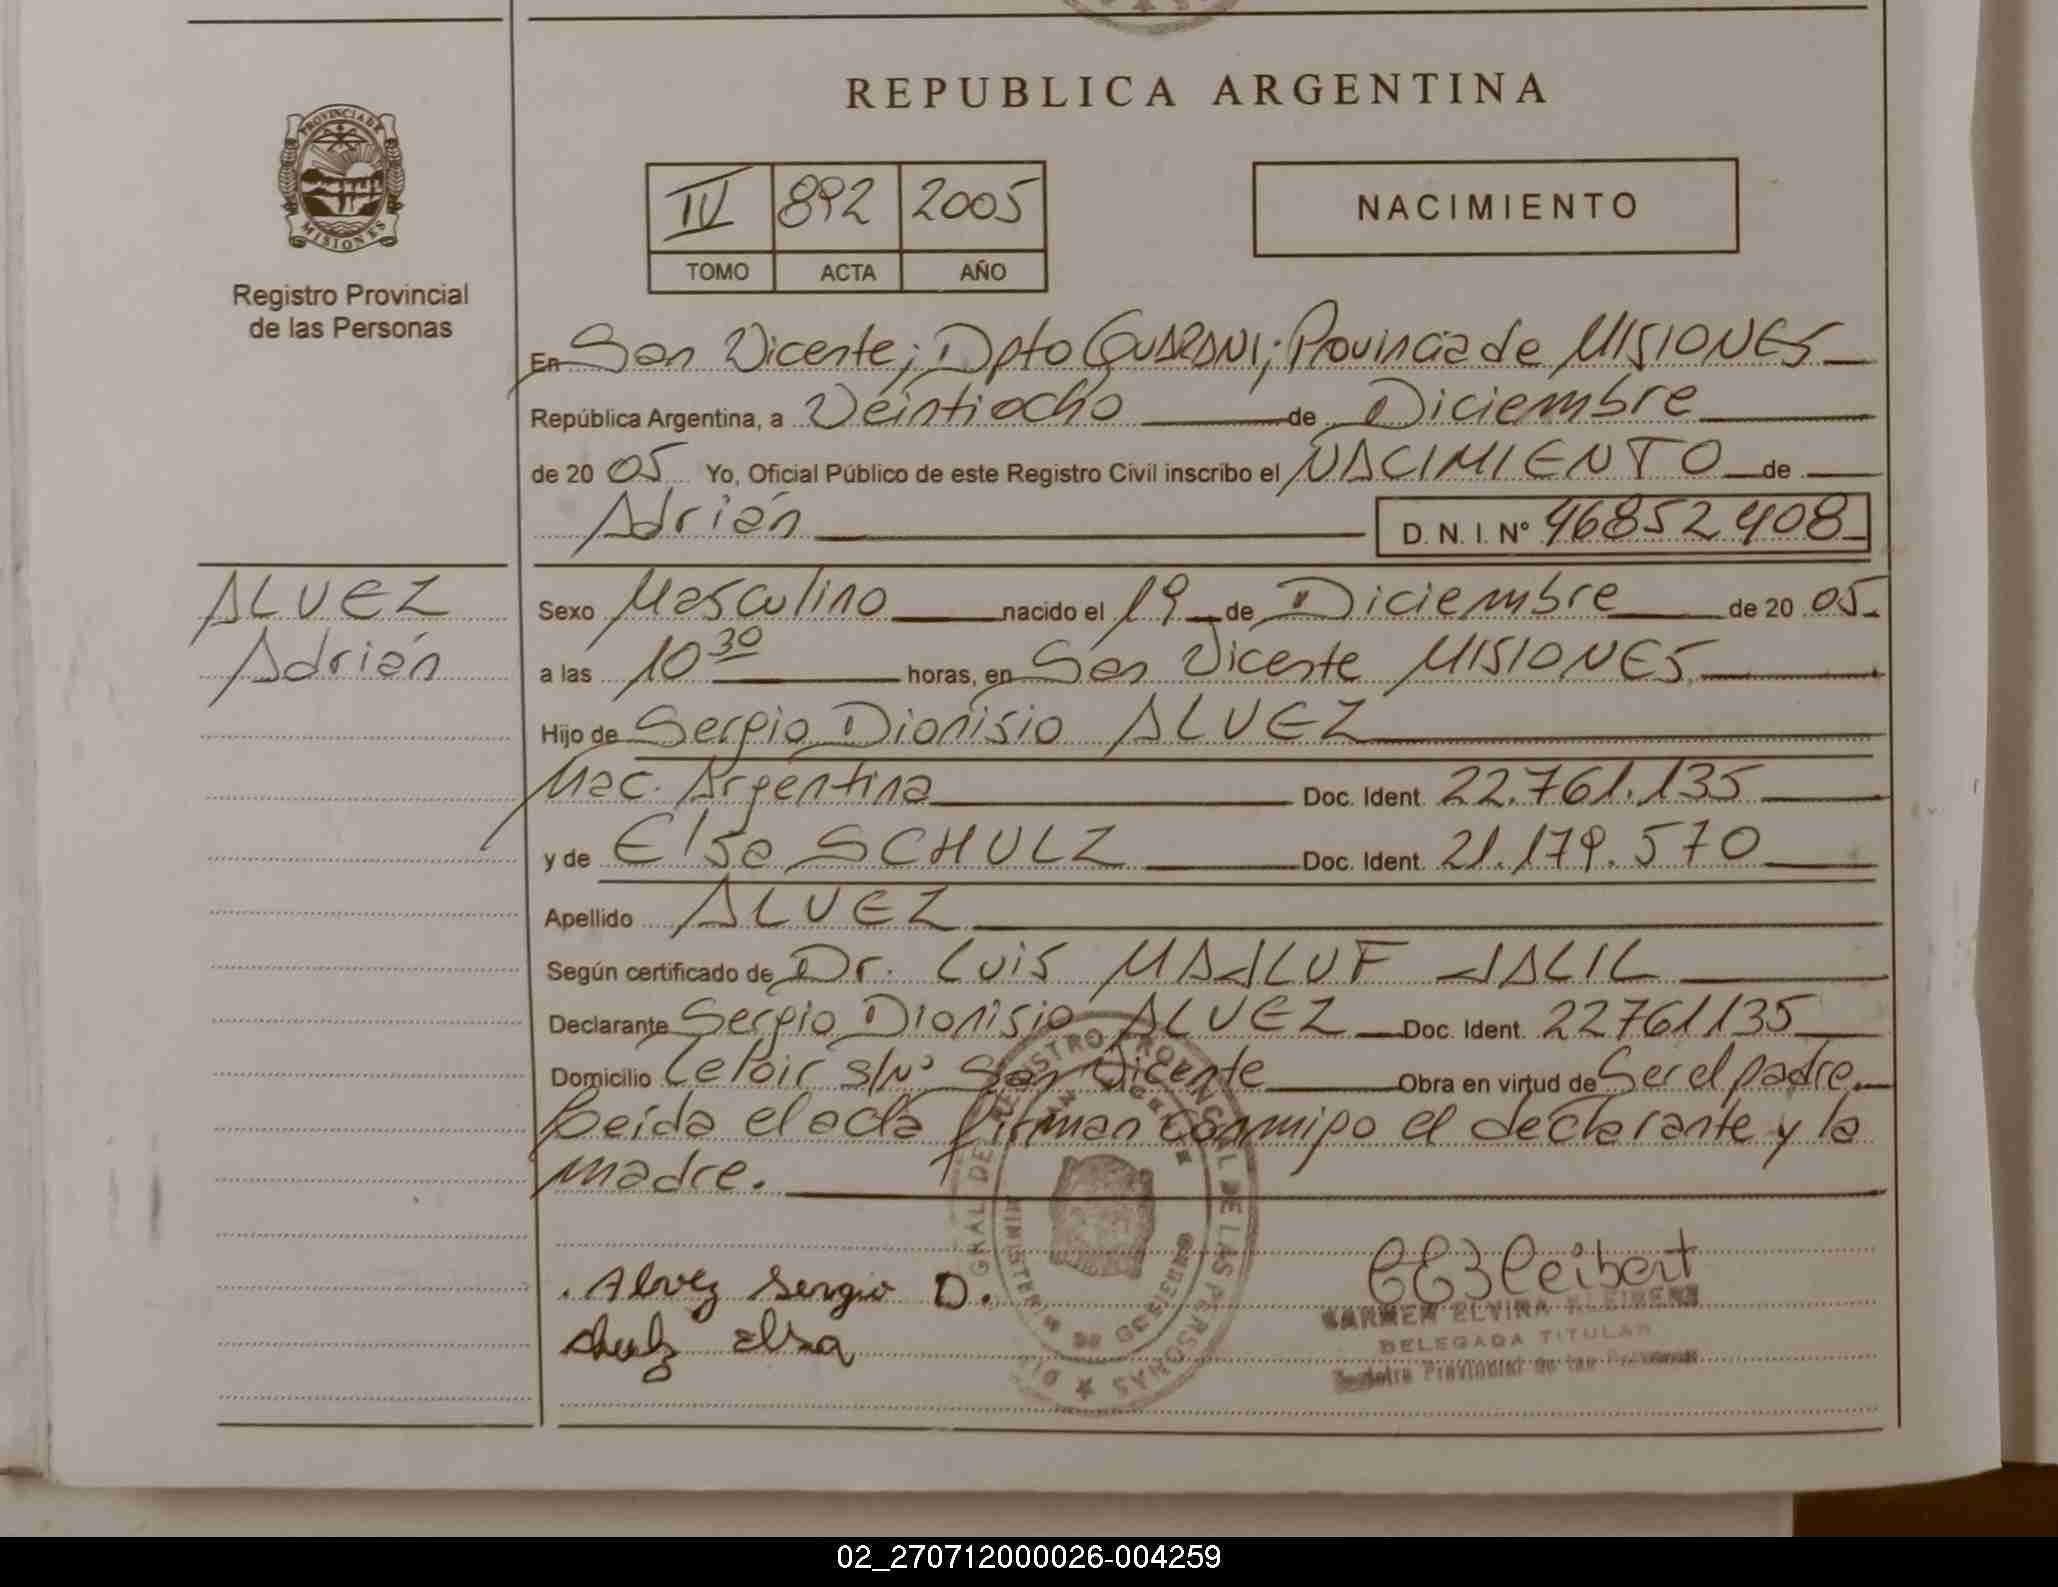 REPUBLICA ARGENTINA
PROVINCIA DE
MISIONES
Registro Provincial
de las Personas
IV 892 2005
TOMO ACTA AÑO
NACIMIENTO
En San Vicente; Dpto GUARANI; Provincia de MISIONES
República Argentina, a Veintiocho de Diciembre
de 20 05 Yo, Oficial Público de este Registro Civil inscribo el NACIMIENTO de
Adrián D. N. I. Nº 46852408
ALVEZ
Adrián
Sexo Masculino nacido el 19 de Diciembre de 20 05
a las 10 30 horas, en San Vicente MISIONES
Hijo de Sergio Dionisio ALVEZ
Nac. Argentina Doc. Ident. 22.761.135
y de Elsa SCHULZ Doc. Ident. 21.179.570
Apellido ALVEZ
Según certificado de Dr. Luis MAJLUF JALIL
Declarante Sergio Dionisio ALVEZ Doc. Ident. 22761135
Domicilio Leloir s/Nº San Vicente Obra en virtud de Ser el padre.
Leída el acta firman conmigo el declarante y la
madre.
REGISTRO PROVINCIAL DE LAS PERSONAS
GRAL DE
SAN VICENTE
MINISTERIO DE GOBIERNO
Alvez Sergio D.
Elsa
CARMEN ELVIRA KLEIBERT
DELEGADA TITULAR
Registro Provincial de las Personas
02_270712000026-004259